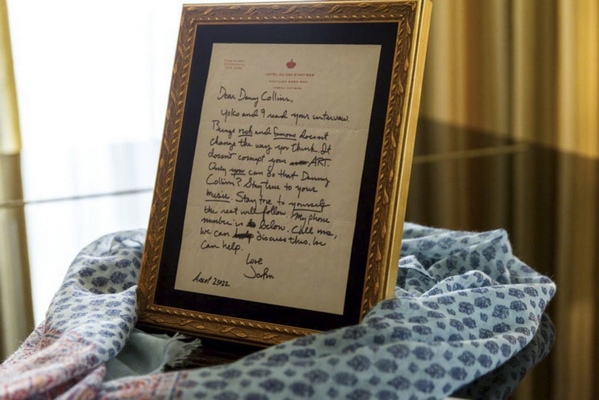 Dear Danny Collins,
Yoko and I read your interview.
Being rich and famous doesn't
change the way you think. It
doesn't corrupt your ART.
Only you can do that Danny
Collins? Stay true to your
music. Stay true to yourself
the rest will follow. My phone
number is below. Call me,
we can discuss this. We
can help.
Love
John